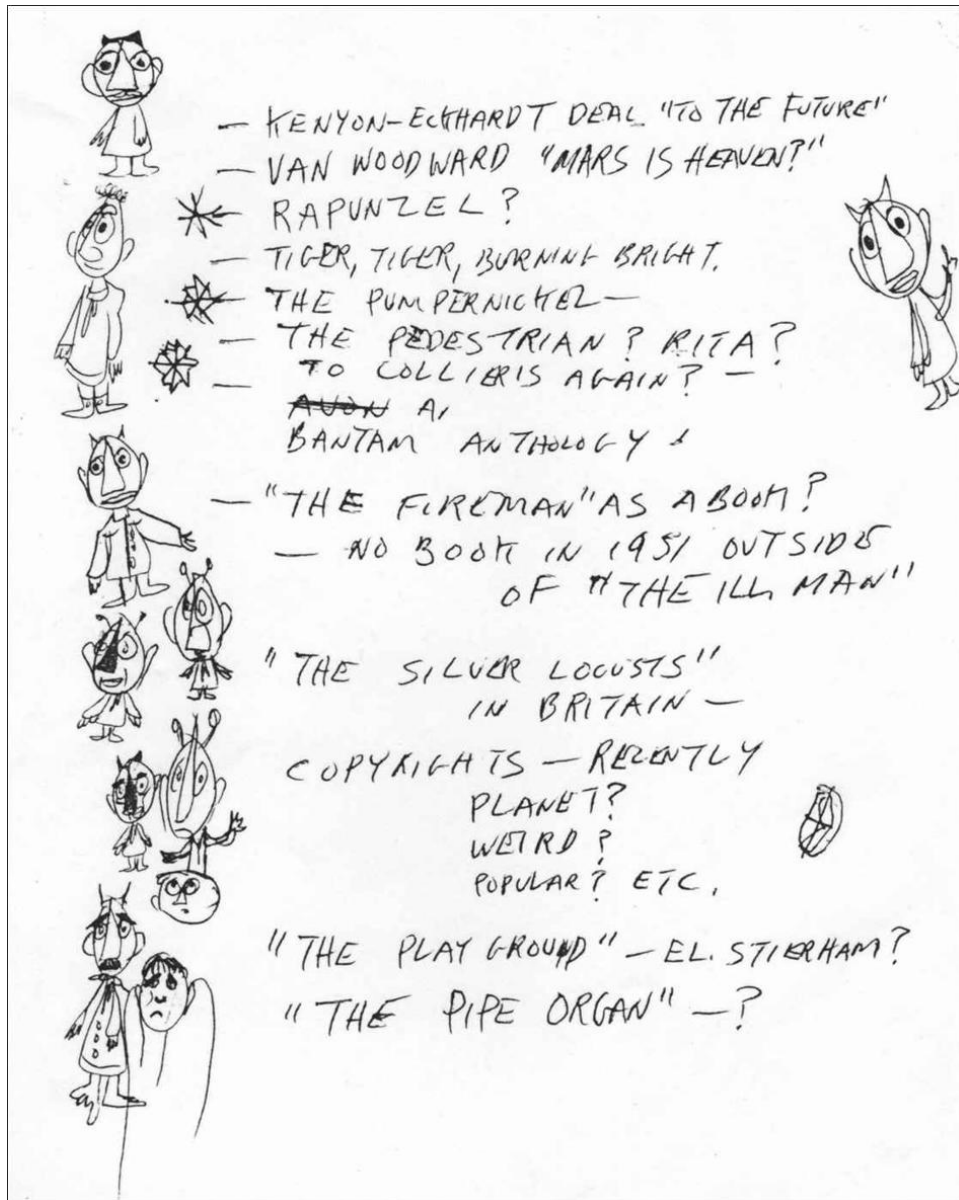 — KENYON-ECKHARDT DEAL "TO THE FUTURE"
— VAN WOODWARD "MARS IS HEAVEN?"
RAPUNZEL?
— TIGER, TIGER, BURNING BRIGHT.
— THE PUMPERNICKEL —
— THE PEDESTRIAN? RITA?
— TO COLLIERIS AGAIN? —
AVON A,
BANTAM ANTHOLOGY
— "THE FIREMAN" AS A BOOK?
— NO BOOK IN 1951 OUTSIDE
OF "THE ILL, MAN"
"THE SILVER LOCUSTS"
IN BRITAIN —
COPYRIGHTS — RECENTLY
PLANET?
WEIRD?
POPULAR? ETC.
"THE PLAYGROUND" — EL. STIERHAM?
"THE PIPE ORGAN" — ?